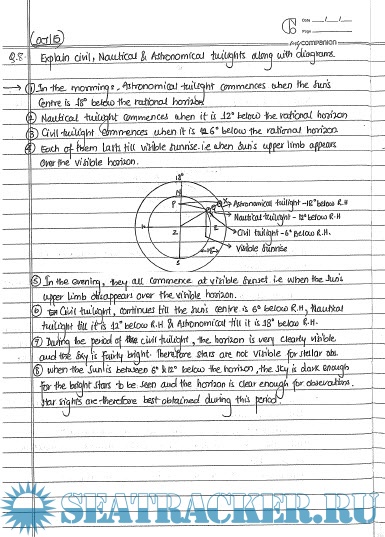 Oct 15
Date / /
Page
companion
Q.8. Explain civil, Nautical & Astronomical twilights along with diagrams.
→ ① In the mornings, Astronomical twilight commences when the Sun's
Centre is 18° below the rational horizon
② Nautical twilight commences when it is 12° below the rational horizon
③ Civil twilight commences when it is 6° below the rational horizon
④ Each of them lasts till visible sunrise i.e when Sun's upper limb appears
over the visible horizon.
18°
N
P
X
Astronomical twilight - 18° below R.H
Nautical twilight - 12° below R.H
W Z E
Civil twilight - 6° below R.H.
Visible Sunrise
18°
S
⑤ In the evening, they all commence at visible sunset i.e when the sun's
upper limb disappears over the visible horizon.
⑥ Civil twilight, continues till the sun's centre is 6° below R.H, Nautical
twilight till it is 12° below R.H & Astronomical till it is 18° below R.H.
⑦ During the period of civil twilight, the horizon is very clearly visible
and the sky is fairly bright. Therefore stars are not visible for stellar obs.
⑧ when the Sun is between 6° & 12° below the horizon, the sky is dark enough
for the bright stars to be seen and the horizon is clear enough for observations.
Star sights are therefore best obtained during this period.
SEATRACKER.RU